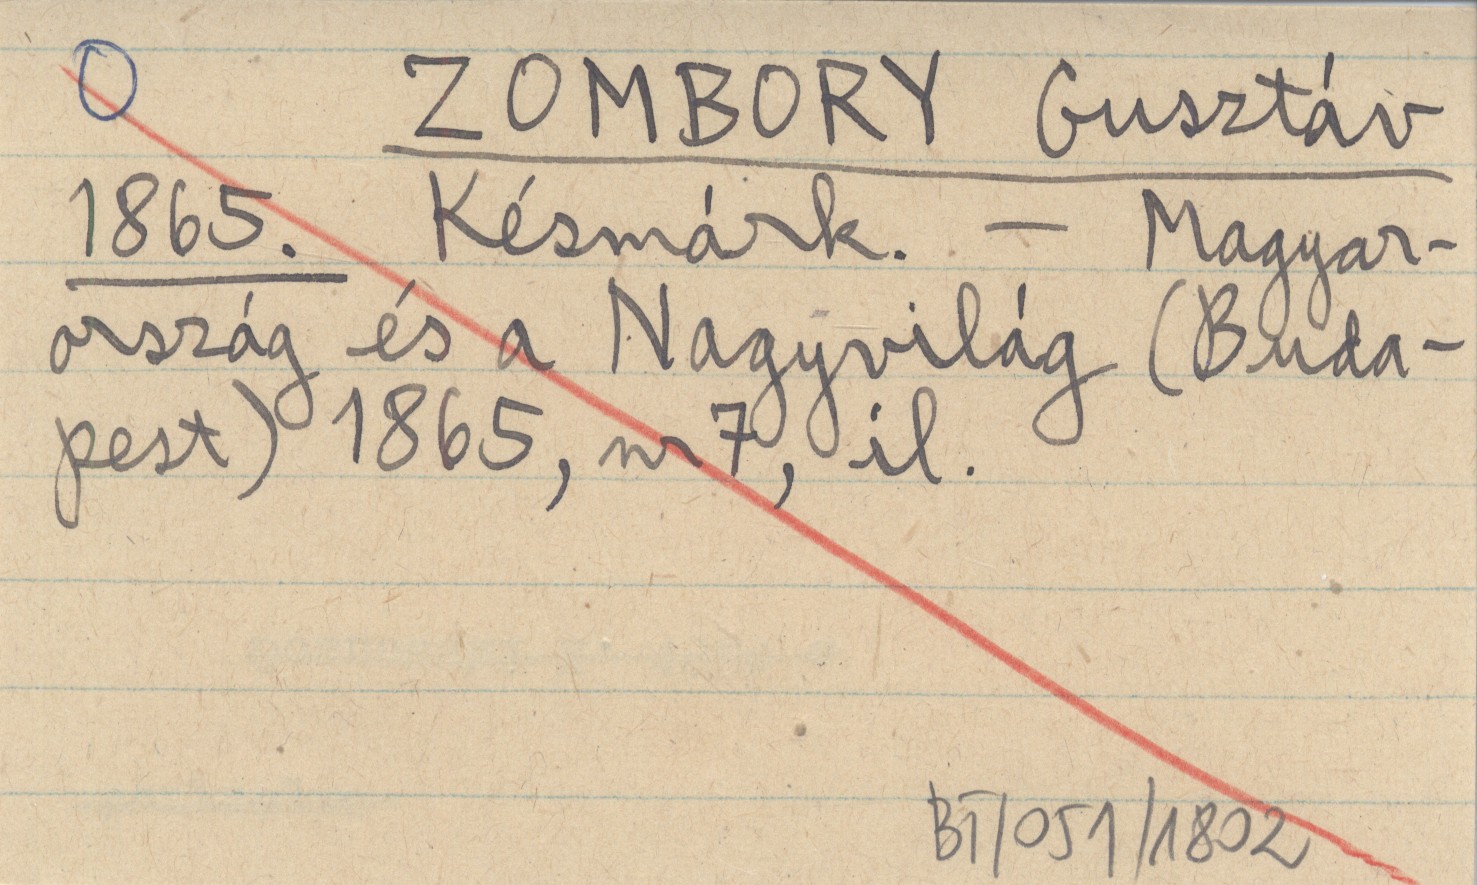 O ZOMBORY Gusztáv
1865. Késmárk. — Magyar-
ország és a Nagyvilág (Buda-
pest) 1865, nr 7, il.
BT/051/1802